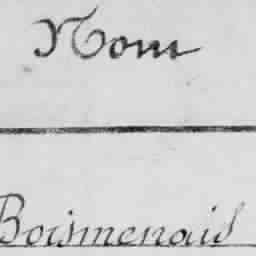 Nom
Boismenais